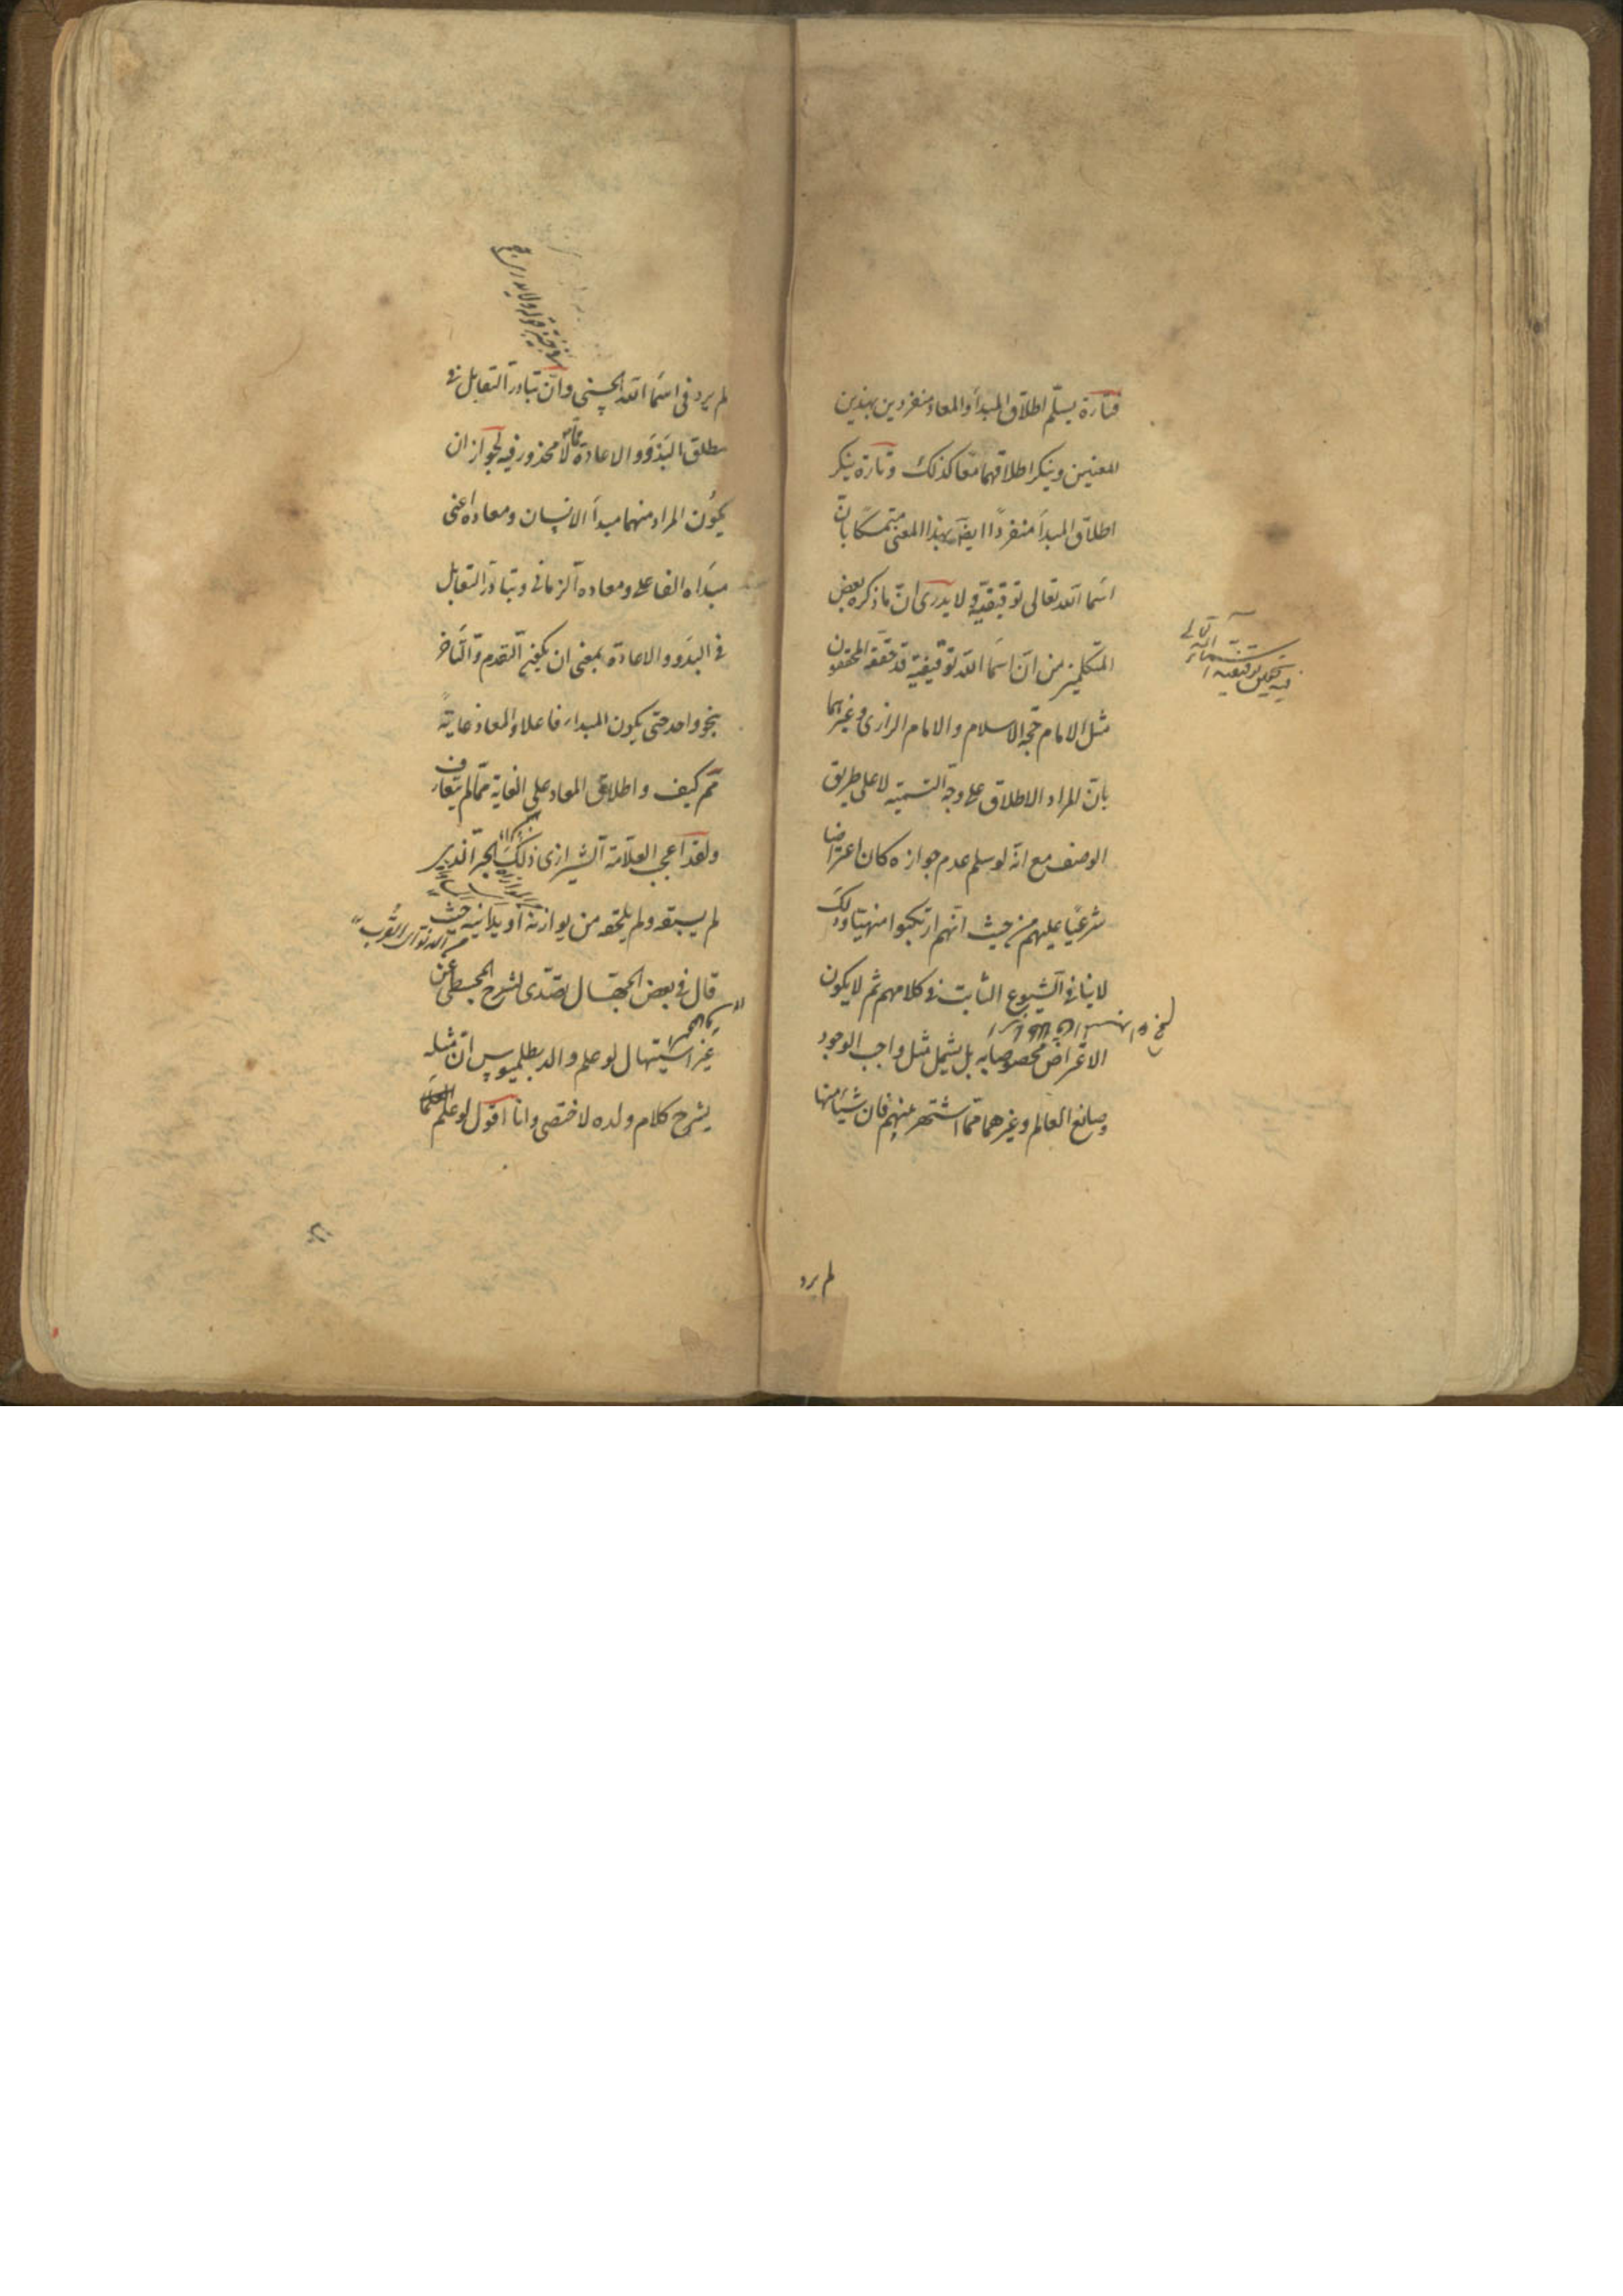 فتارة يسلّم اطلاق المبدأ والمعاد منفردين بهذين
المعنيين وينكر اطلاقهما معا كذلك وتارة ينكر
اطلاق المبدأ منفردًا ايضا بهذا المعنى متمسكا بان
اسماء الله تعالى توقيفية ولا يدرى انّ ما ذكره بعض
المتكلمين من انّ اسماء الله توقيفية قد حققه المحققون
مثل الامام حجة الاسلام والامام الرازى وغيرهما
بانّ المراد الاطلاق على وجه التسمية لا على طريق
الوصف مع انّه لو سلم عدم جوازه كان اعتراضا
شرعيًا عليهم من حيث انّهم ارتكبوا منهيّا وذلك
لا ينافى الشيوع الثابت فى كلامهم ثم لا يكون
الاعتراض مخصوصا به بل يشمل مثل واجب الوجود
وصانع العالم وغيرهما ممّا اشتهر منهم فان شيئا منها
لم يرد
لم يرد فى اسماء الله الحسنى وانّ تبادر التقابل فى
مطلق البدؤ والاعادة لا محذور فيه لجواز ان
يكون المراد منهما مبدأ الانسان ومعاده اعنى
مبدأه الفاعلى ومعاده الزمانى وتبادر التقابل
فى البدؤ والاعادة بمعنى ان يكونا التقدم والتأخر
بنحو واحد حتى يكون المبداء فاعلا والمعاد غاية
ثم كيف واطلاق المعاد على الغاية ممّا لم يتعارف
ولقد اعجب العلّامة الشيرازى ذلك الحبر الذى
لم يسبقه ولم يلحقه من يوازنه او يدانيه حيث
قال فى بعض الجهّال تصدّى لشرح المجسطى عن
غير استيهال لو علم والد بطلميوس انّ مثله
يشرح كلام ولده لاختصى وانا اقول لو علم